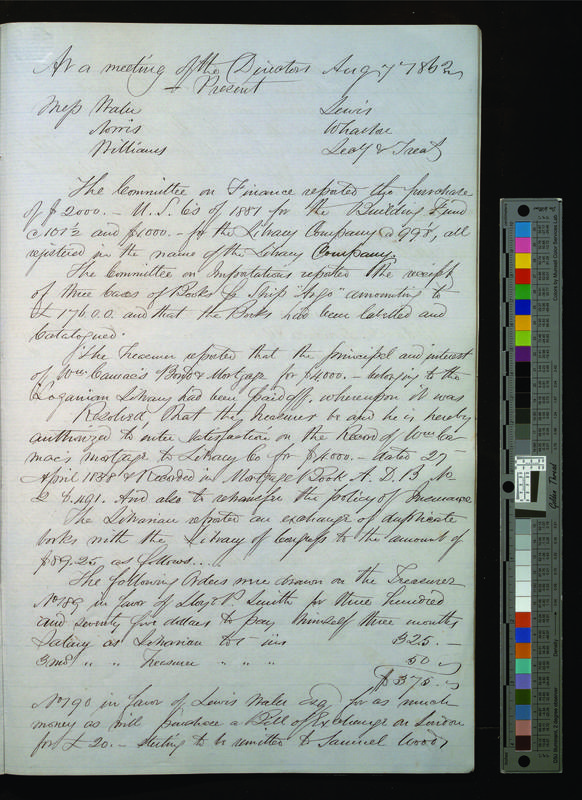 At a meeting of the Directors Aug 7 1862
Present
Mess Waln Lewis
Norris Wharton
Williams Secy & Treas
The Committee on Finance reported the purchase
of $2000.- U.S. 6s of 1881 for the Building Fund
and $1000.- for the Library Company @ all
registered in the name of the Library Company
The Committee on Importations reported the receipt
of three Cases of Books Ship "Argo" amounting to
£176.0.0 and that the Books had been labelled and
Catalogued.
The Treasurer reported that the principal and interest
of Wm Camac's Bond & Mortgage for $4000.- belonging to the
Loganian Library had been paid off, whereupon it was
Resolved, That the Treasurer be and he is hereby
authorized to enter satisfaction on the Record of Wm Ca-
mac's mortgage to Library Co for $4000.- dated 27
April 1838 & Recorded in Mortgage Book A.D.B No
2 p.491. And also to retransfer the policy of Insurance
The Librarian reported an exchange of duplicate
books with the Library of Congress to the amount of
$89.25 as follows....
The following Orders were drawn on the Treasurer
No 189 in favor of Lloyd P. Smith for three hundred
and seventy five dollars to pay himself three months
Salary as Librarian to 1 ins 325.-
3 mos " " Treasurer " " " 50
$375.-
No 190 in favor of Lewis Waln Esq for as much
money as will purchase a Bill of Exchange on London
for £20.- sterling to be remitted to Samuel Wood,